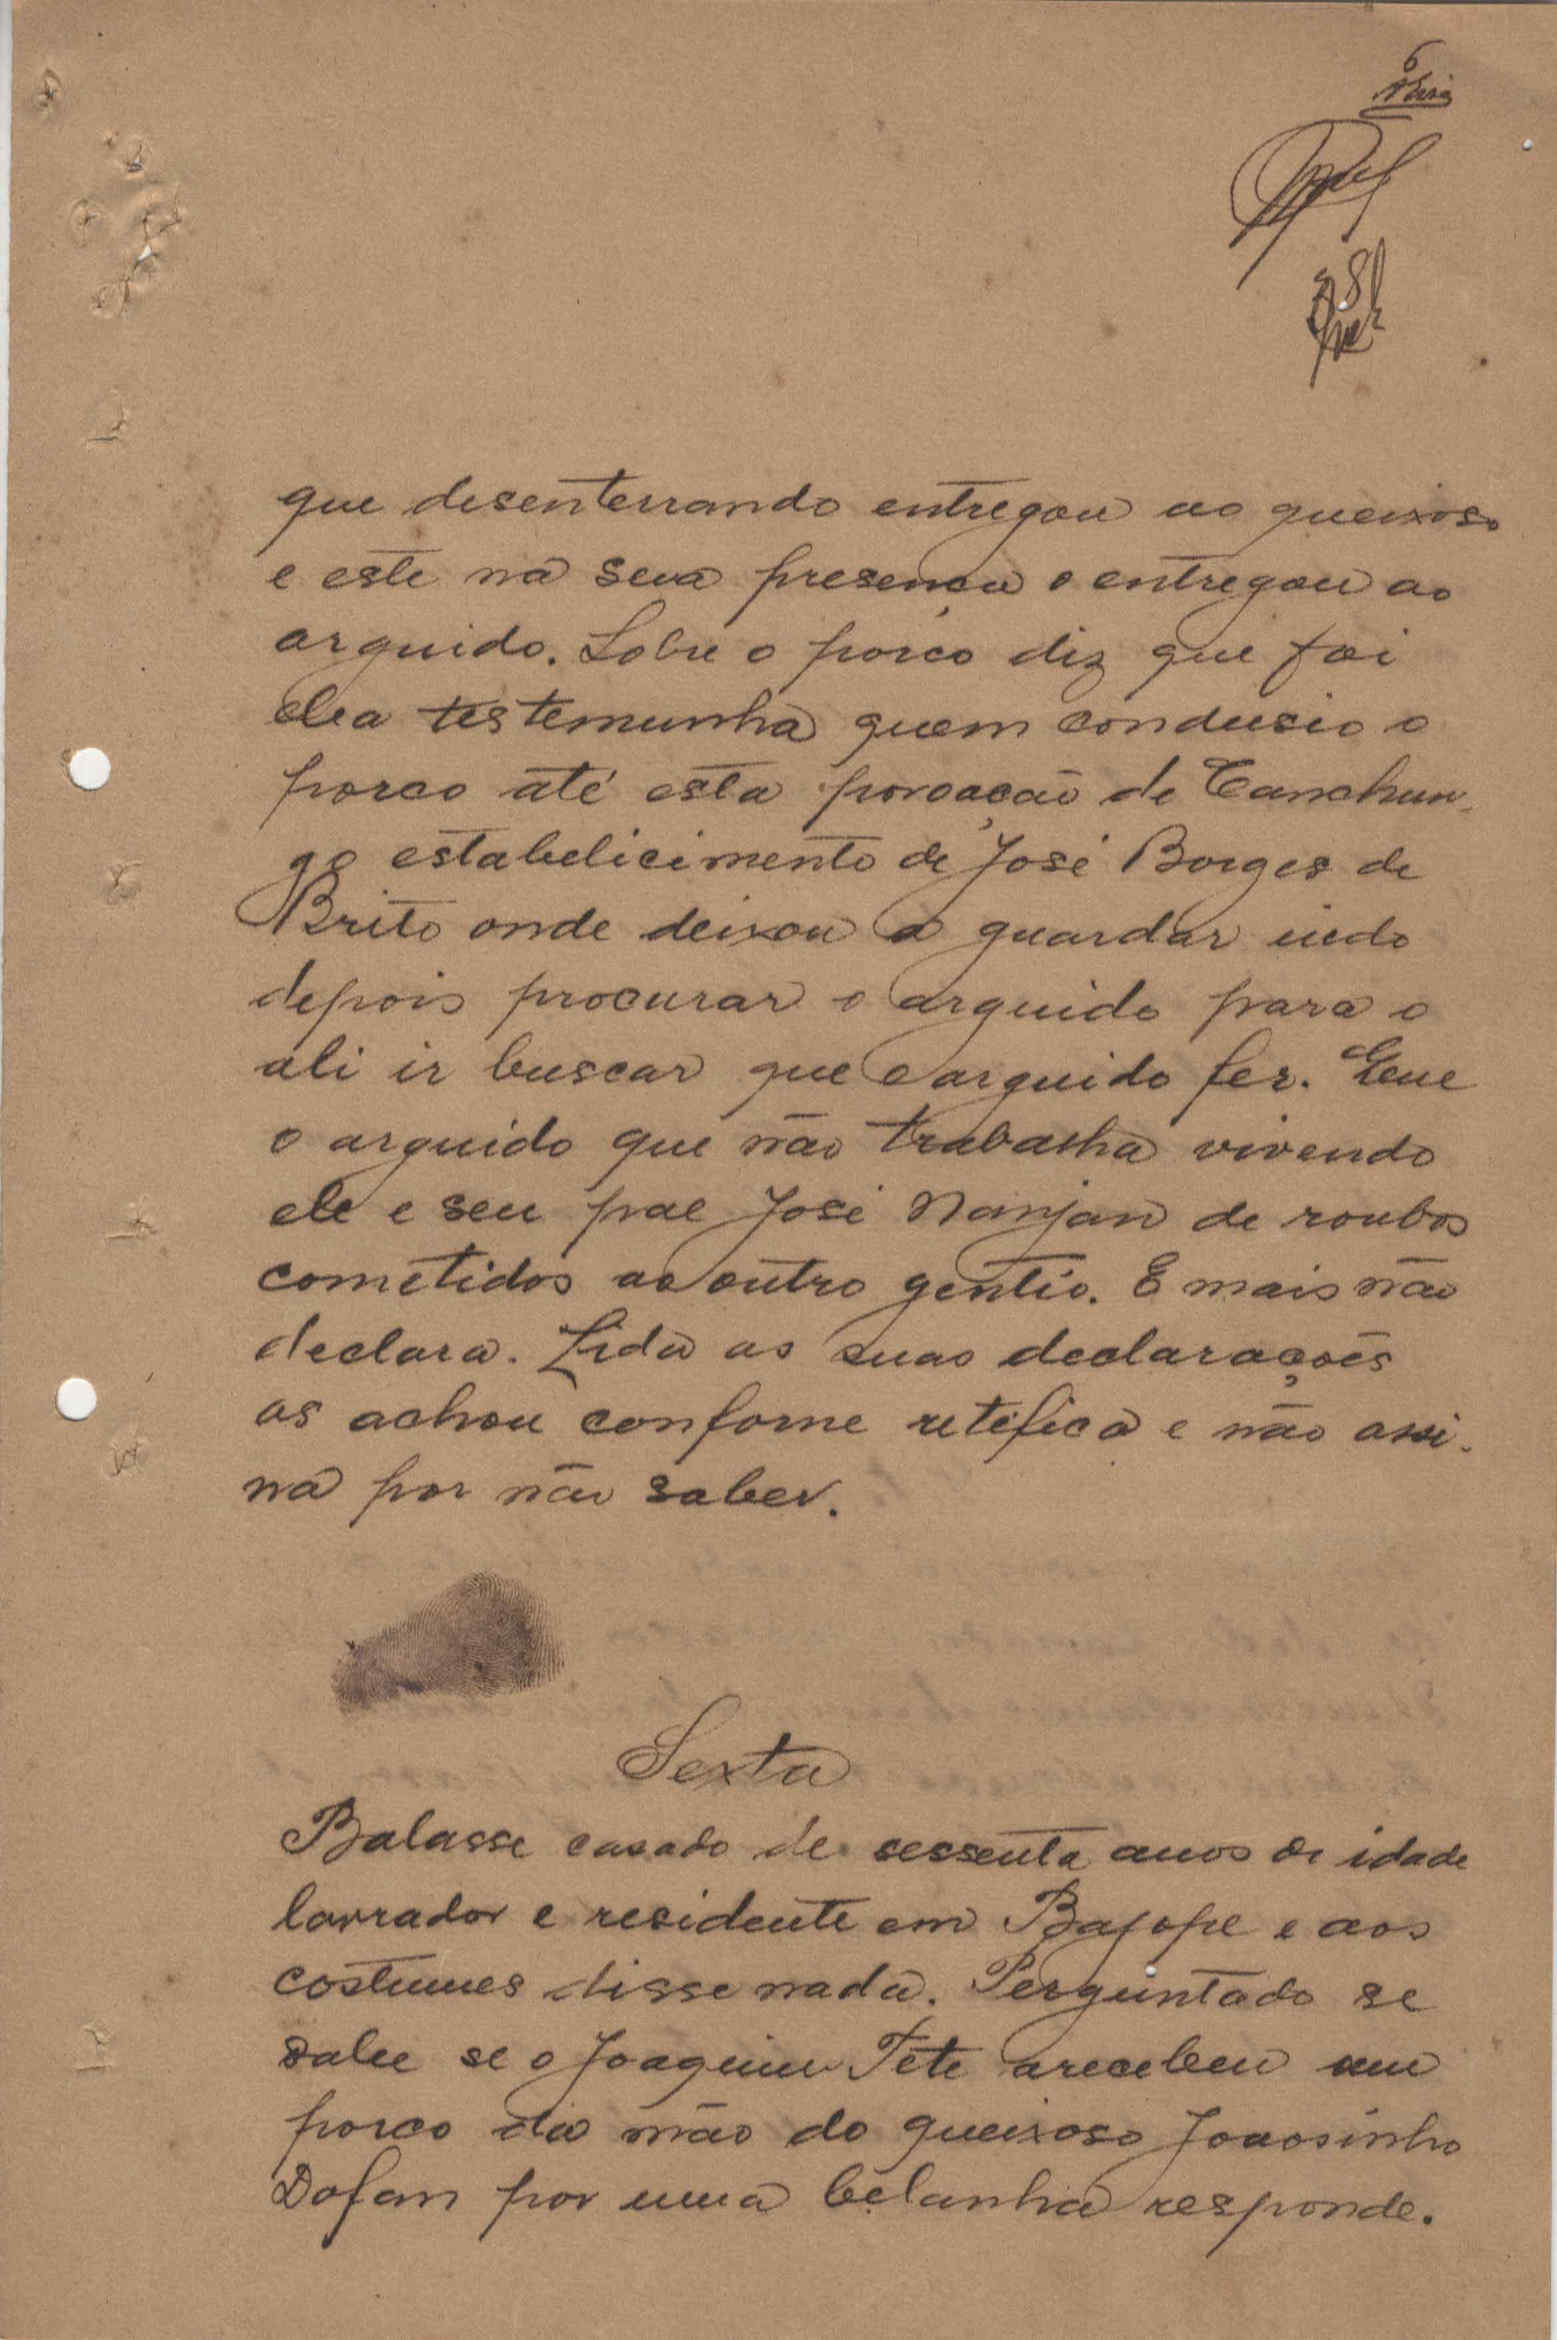 6
que desenterrando entregou ao queixoso
e este na sua presença o entregou ao
arguido. Sobre o porco diz que foi
ela testemunha quem condusio o
porco até esta povoação de Canchun-
go estabelicimento de José Borges de
Brito onde deixou a guardar indo
depois procurar o arguido para o
ali ir buscar que o arguido fez. Que
o arguido que não trabalha vivendo
ele e seu pae José Nanjan de roubos
cometidos ao outro gentio. E mais não
declara. Lida as suas declarações
as achou conforme retifica e não assi-
na por não saber.
Sexta
Balasse casado de sessenta anos de idade
lavrador e residente em Bajope e aos
costumes disse nada. Perguntado se
sabe se o Joaquim Tete arecebeu um
porco da mão do queixoso Joaosinho
Dofan por uma belanha responde.